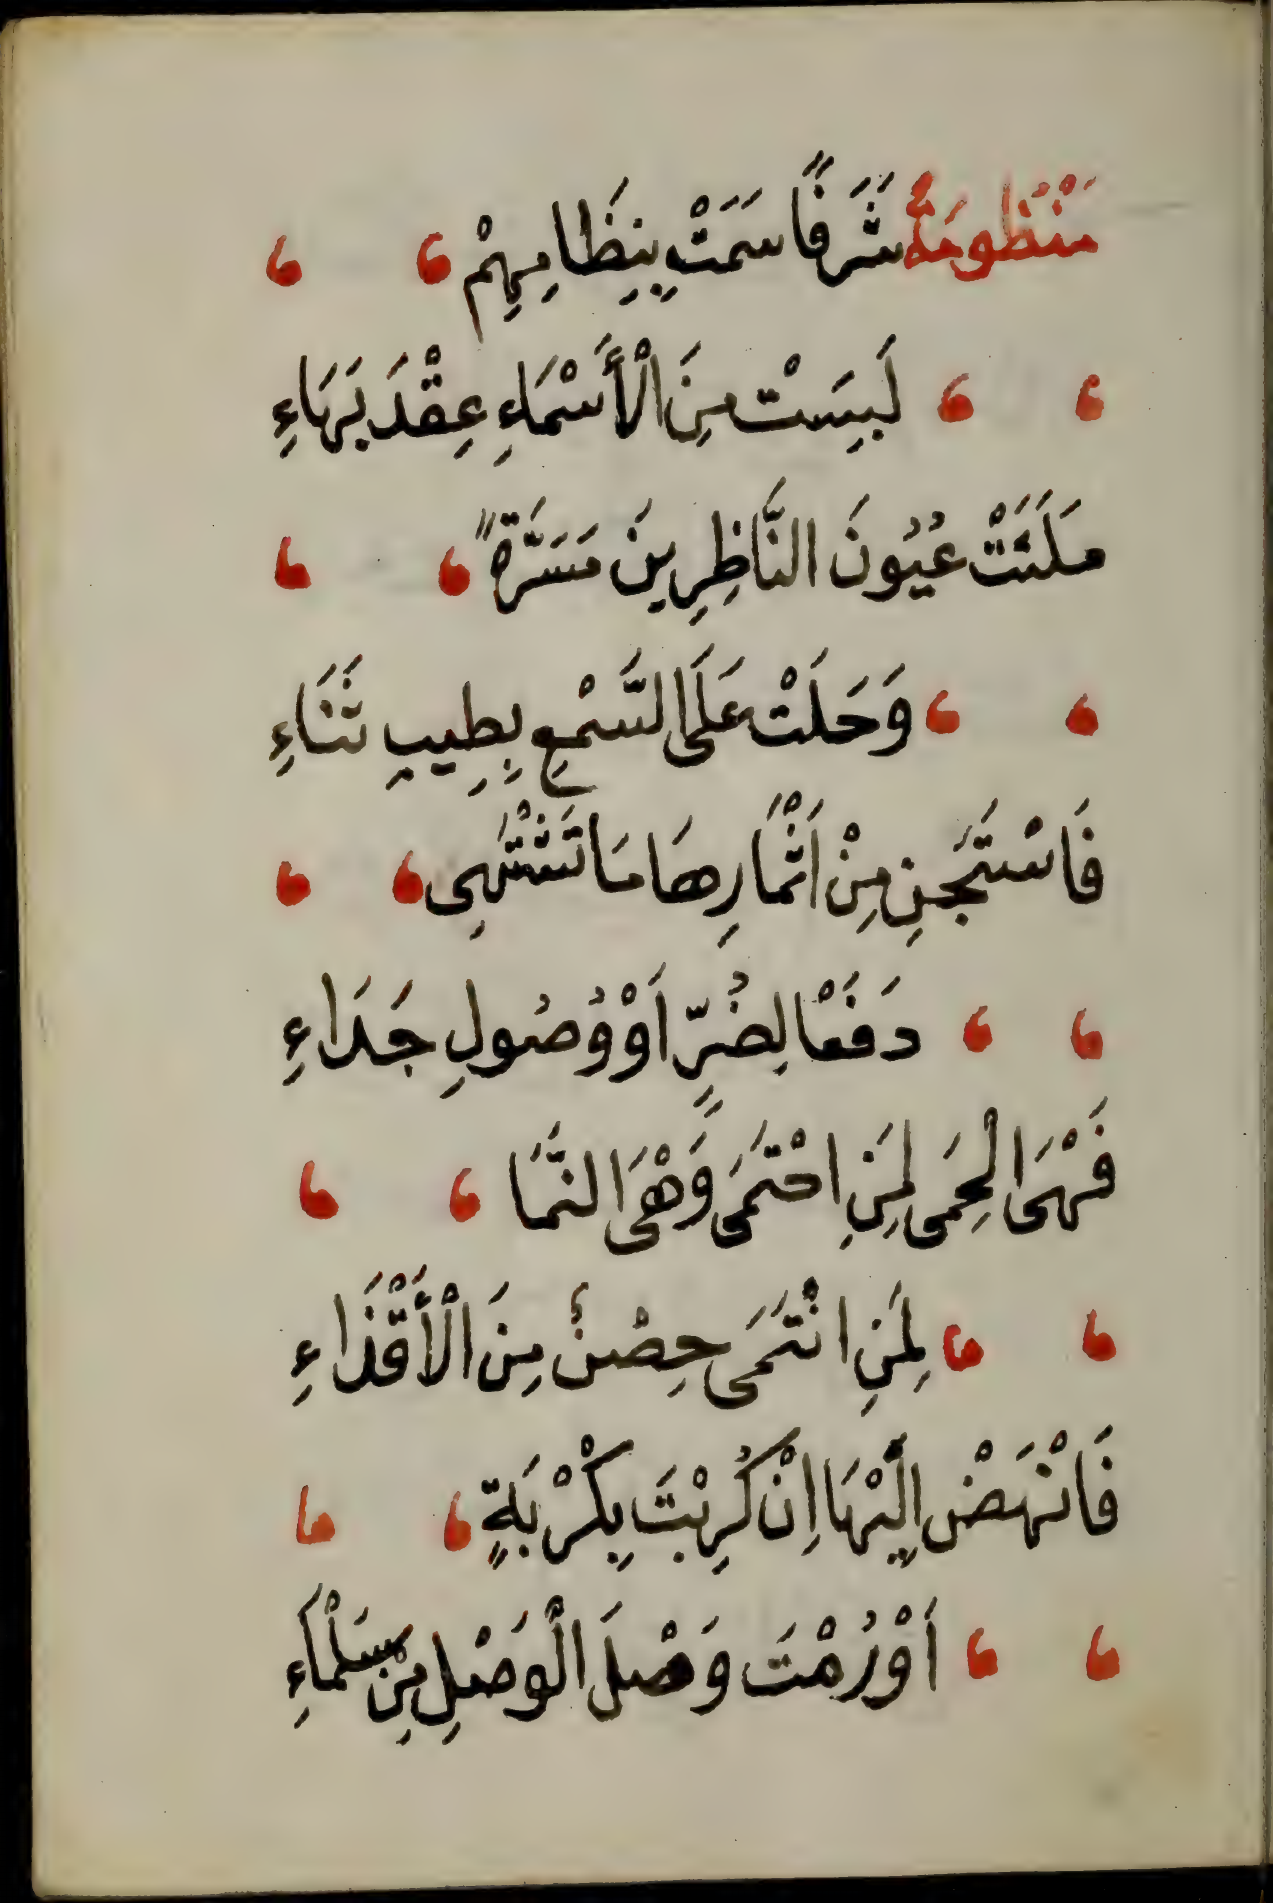 مَنْظُومَةٌ شَرَفًا سَمَتْ بِنِظَامِهِمْ
لَبِسَتْ مِنَ الْأَسْمَاءِ عِقْدَ بَهَاءِ
مَلَئَتْ عُيُونَ النَّاظِرِينَ مَسَرَّةً
وَحَلَتْ عَلَى السَّمْعِ بِطِيبِ ثَنَاءِ
فَاسْتَجْنِ مِنْ اَثْمَارِهَا مَا تَشْتَهِى
دَفْعًا لِضُرٍّ اَوْ وُصُولِ جَدَاءِ
فَهْىَ الْحِمَى لِمَنِ احْتَمَى وَهْىَ النَّمَا
لِمَنِ انْتَمَى حِصْنٌ مِنَ الْأَقْذَاءِ
فَانْهَضْ اِلَيْهَا اِنْ كُرِبْتَ بِكُرْبَةٍ
اَوْ رُمْتَ وَصْلَ الْوَصْلِ مِنْ سَلْمَاءِ